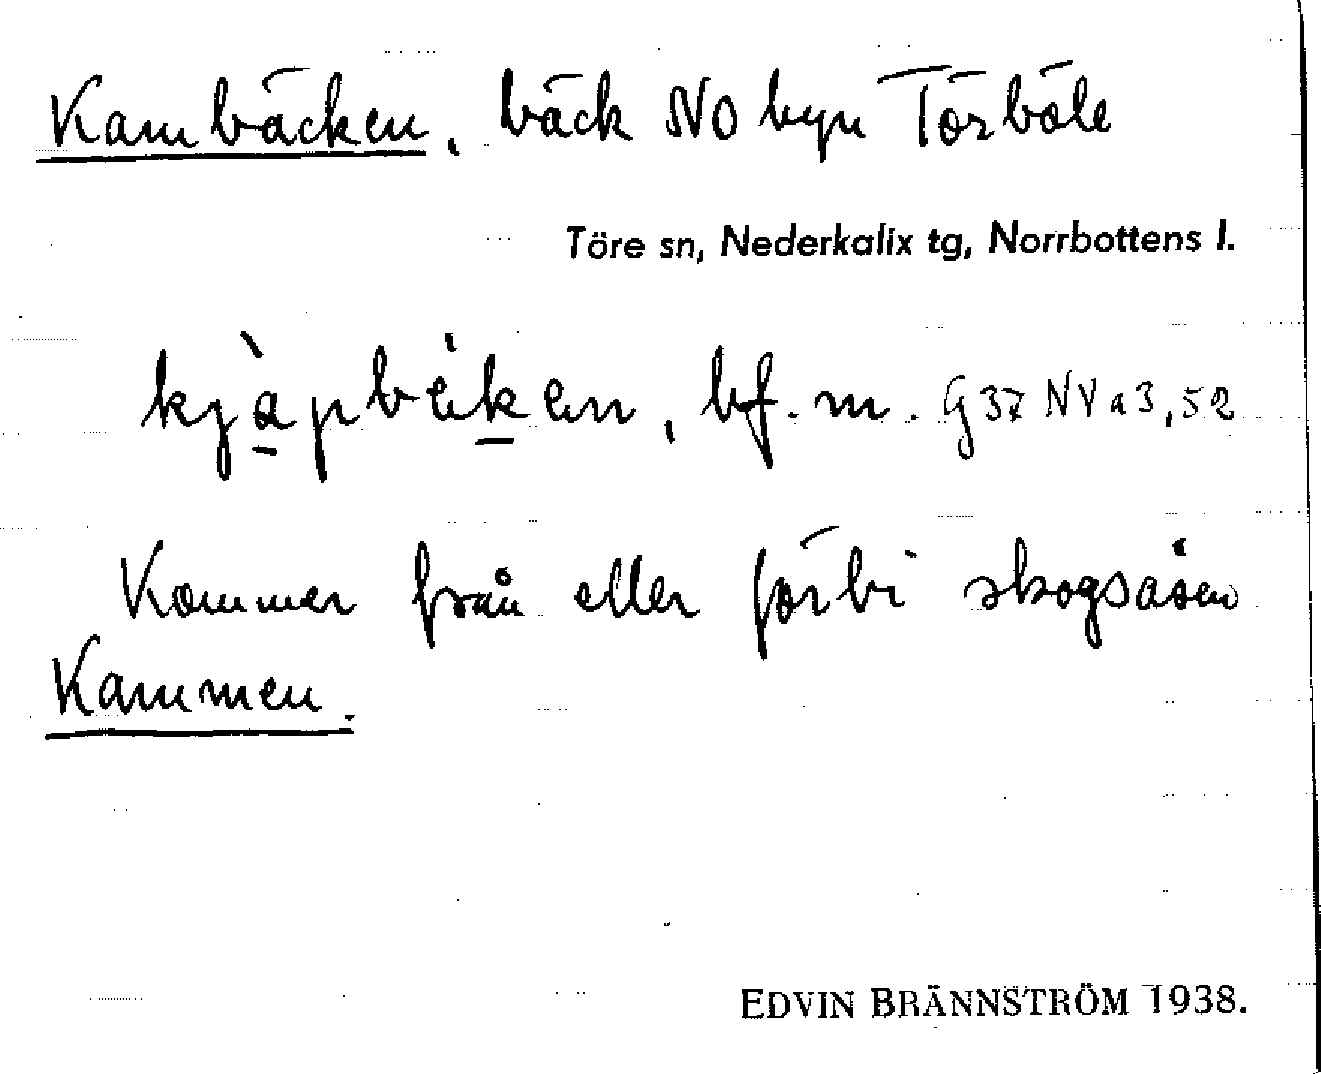 Kambäcken, bäck NO byn Törböle
Töre sn, Nederkalix tg, Norrbottens l.
bf. m. G 37 NV a 3, 52
Kommer från eller förbi skogsåsen
Kammen.
EDVIN BRÄNNSTRÖM 1938.